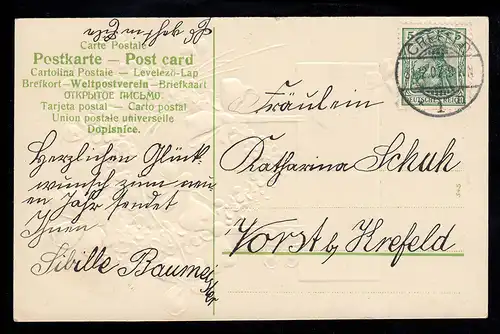 Carte Postale
Postkarte — Post card
Cartolina Postale — Levelezö-Lap
Brefkort - Weltpostverein - Briefkaart
ОТКРЫТОЕ ПИСЬМО.
Tarjeta postal — Carto postal
Union postale universelle
Dopisnice.
Herzlichen Glück-
wunsch zum neu-
en Jahr sendet
Ihnen
Sibille Baumei-
ster
5
CREFELD
DEUTSCHES REICH
1
Fräulein
Katharina Schuh
Vorst b. Krefeld